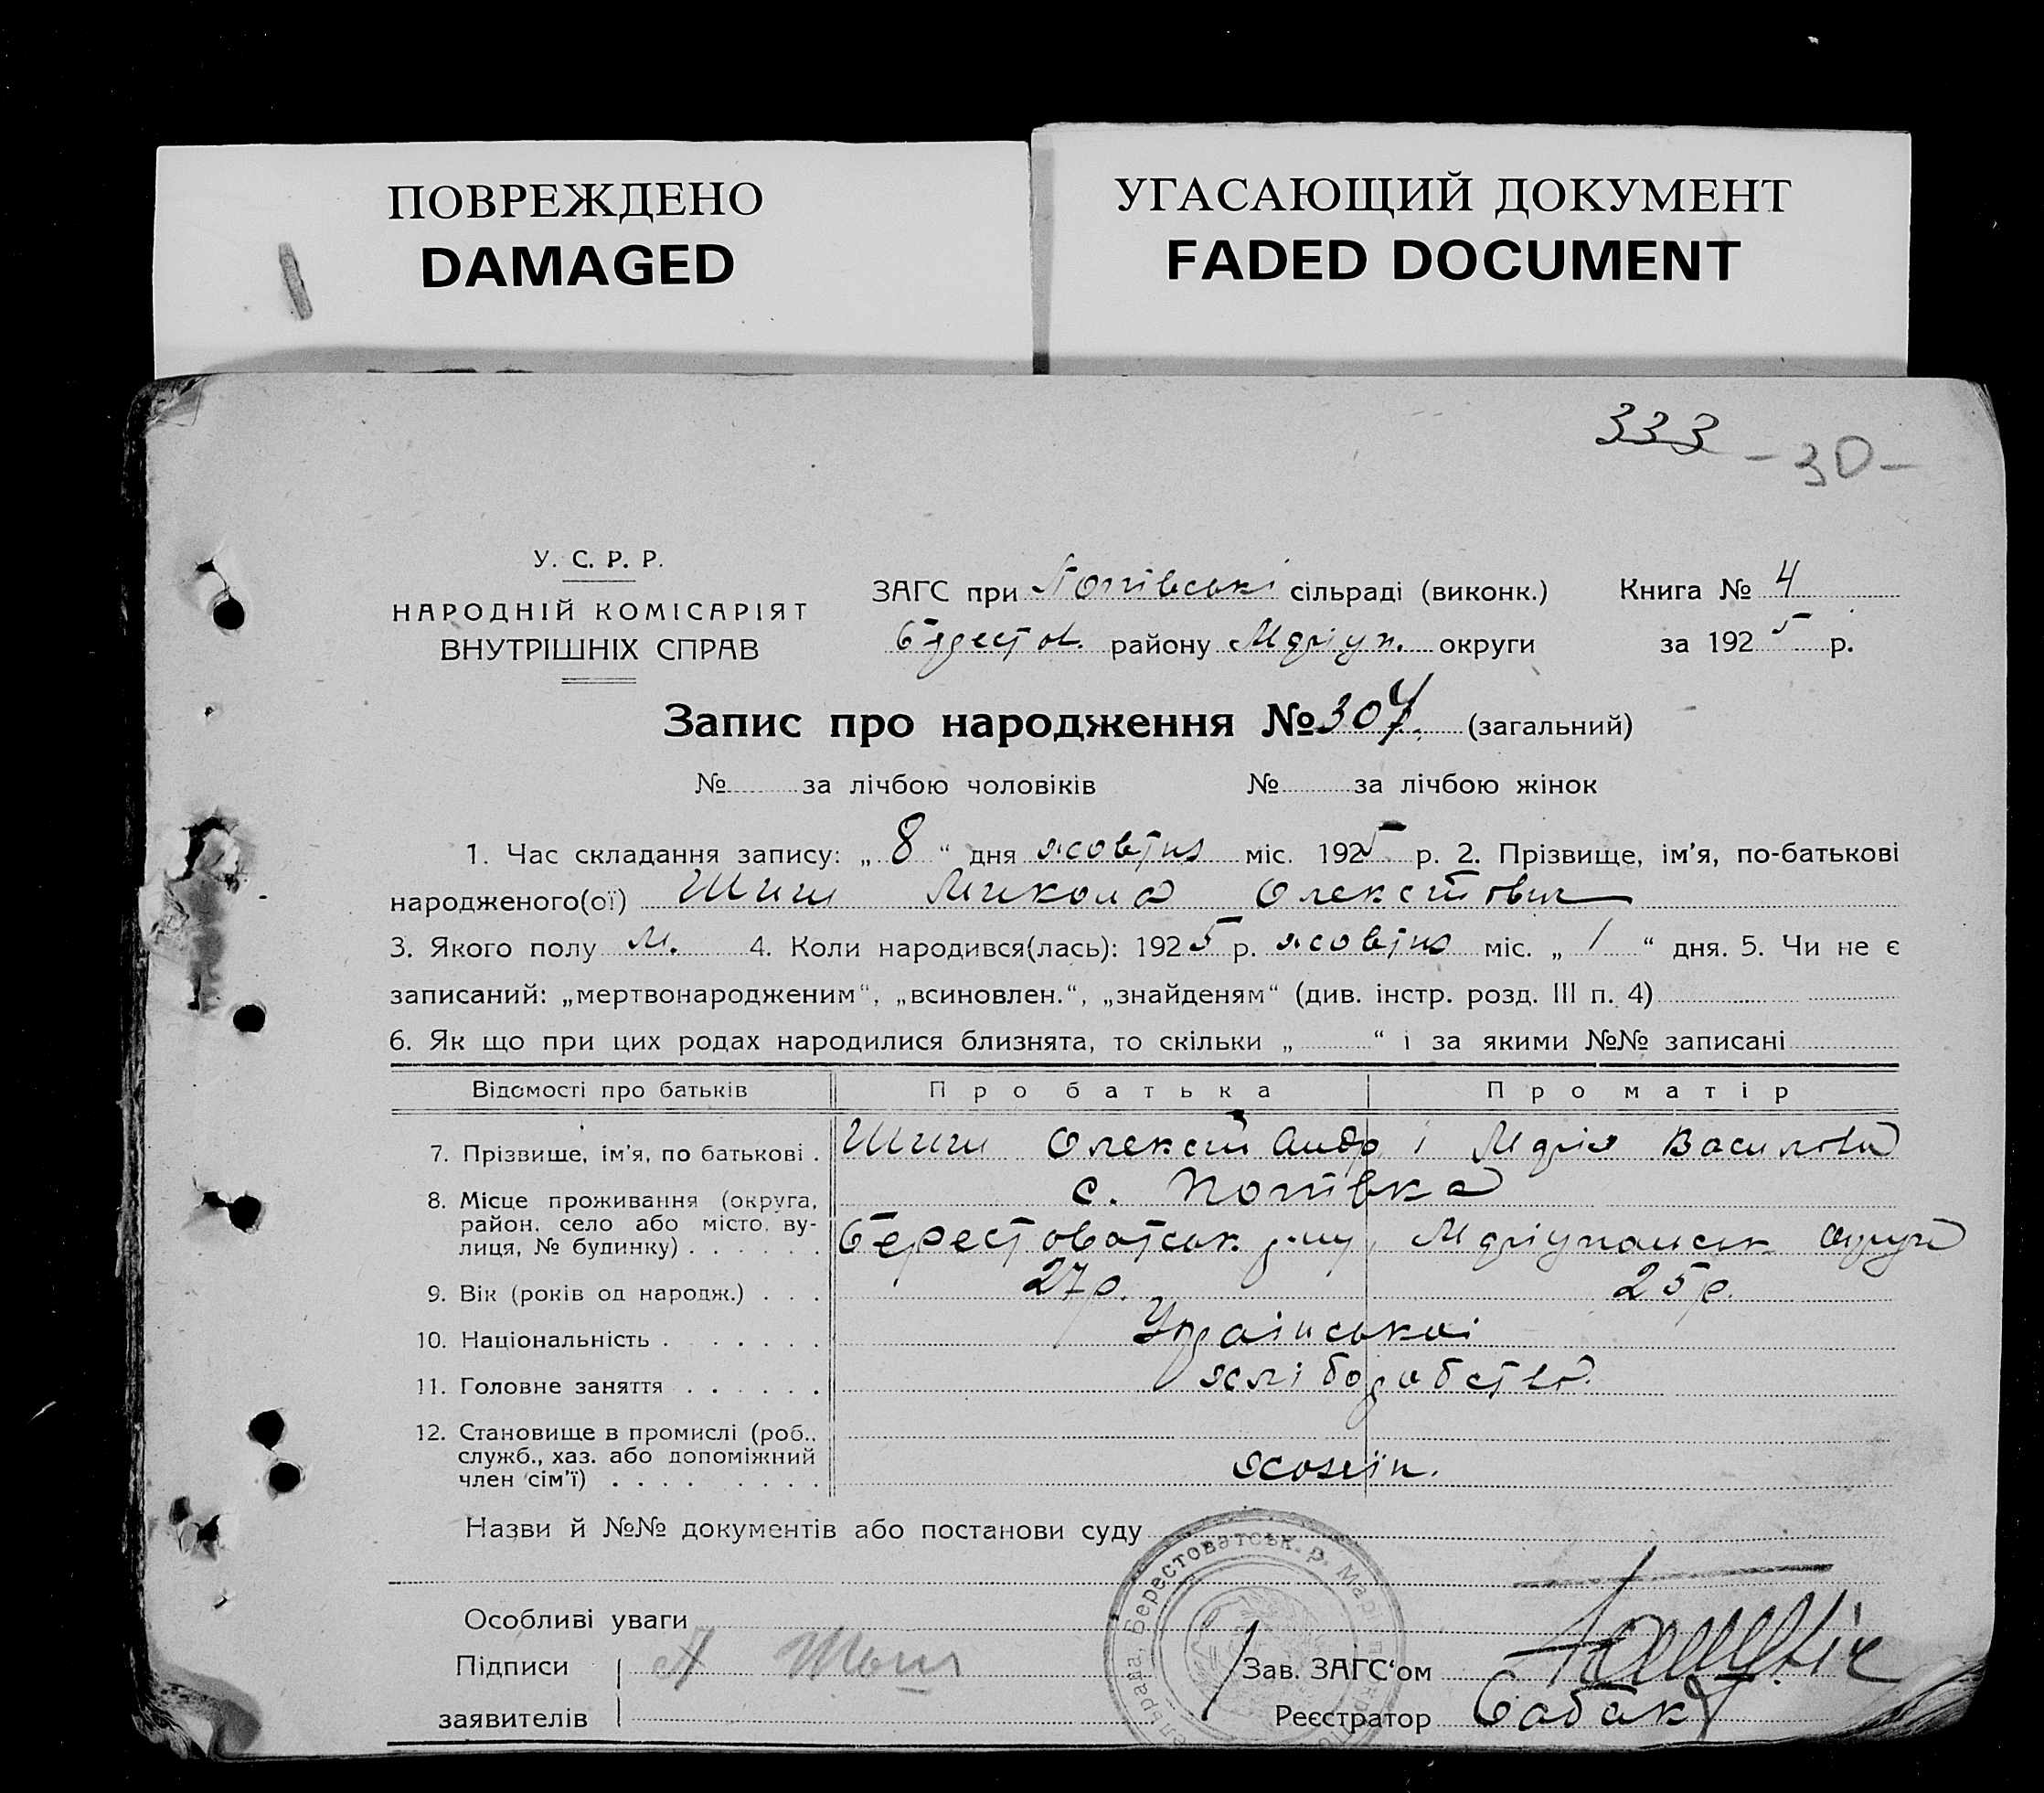 ПОВРЕЖДЕНО
DAMAGED
УГАСАЮЩИЙ ДОКУМЕНТ
FADED DOCUMENT
333 - 30 -
У. С. Р. Р.
НАРОДНІЙ КОМІСАРІЯТ
ВНУТРІШНІХ СПРАВ
ЗАГС при Попівські сільраді (виконк.) Книга № 4
Берестов. району Маріуп. округи за 1925 р.
Запис про народження № 307. (загальний)
№ за лічбою чоловіків № за лічбою жінок
1. Час складання запису: „ 8 “ дня жовтня міс. 1925 р. 2. Прізвище, ім’я, по-батькові
народженого(ої) Шиш Микола Олексійович
3. Якого полу м. 4. Коли народився(лась): 1925 р. жовтня міс. „ 1 “ дня. 5. Чи не є
записаний: „мертвонародженим“, „всиновлен.“, „знайденям“ (див. інстр. розд. III п. 4)
6. Як що при цих родах народилися близнята, то скільки „ “ і за якими №№ записані
Відомості про батьків Про батька Про матір
7. Прізвище, ім’я, по батькові . Шиш Олексій Андр і Марія Василівна
8. Місце проживання (округа, с. Попівка
район, село або місто, ву-
лиця, № будинку) . . . . . . Берестоватськ. р-ну, Маріупольск округи
9. Вік (років од народж.) . . . 27 р. 25 р.
10. Національність . . . . . . . Українські
11. Головне заняття . . . . . . хліборобство.
12. Становище в промислі (роб.,
служб., хаз. або допоміжний
член сім’ї) . . . . . . . . . хозяїн.
Назви й №№ документів або постанови суду
Берестоватськ. р. Марі
Особливі уваги
Підписи А Шиш Зав. ЗАГС‘ом
заявителів Реєстратор Бабак